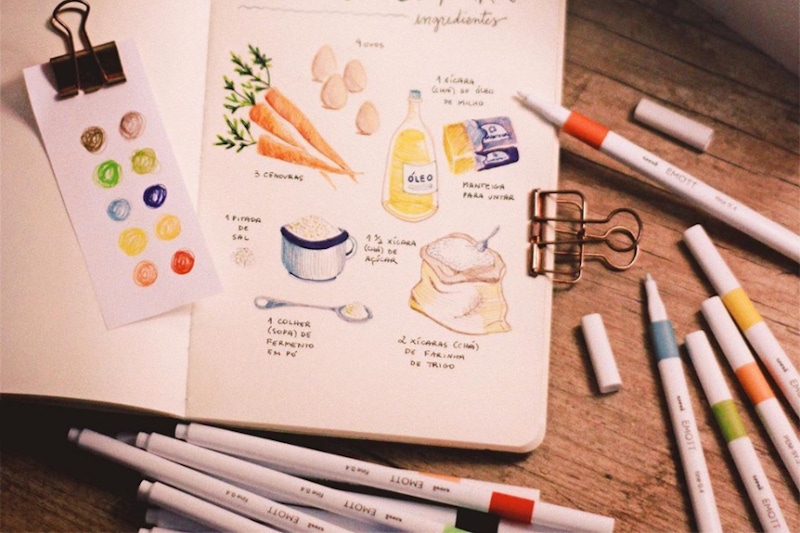 ingredientes
4 ovos
1 XÍCARA
(CHÁ) DE ÓLEO
DE MILHO
ÓLEO
3 CENOURAS
MANTEIGA
PARA UNTAR
1 PITADA
DE
SAL
1 ½ XÍCARA
(CHÁ) DE
AÇÚCAR
1 COLHER
(SOPA) DE
FERMENTO
EM PÓ
2 XÍCARAS (CHÁ)
DE FARINHA
DE TRIGO
uni EMOTT fine 0.4
uni EMOTT
uni EMOTT fine 0.4
uni EMOTT
EMOTT
fine 0.4 uni
EMOTT fine 0.4
EMOTT fine 0.4